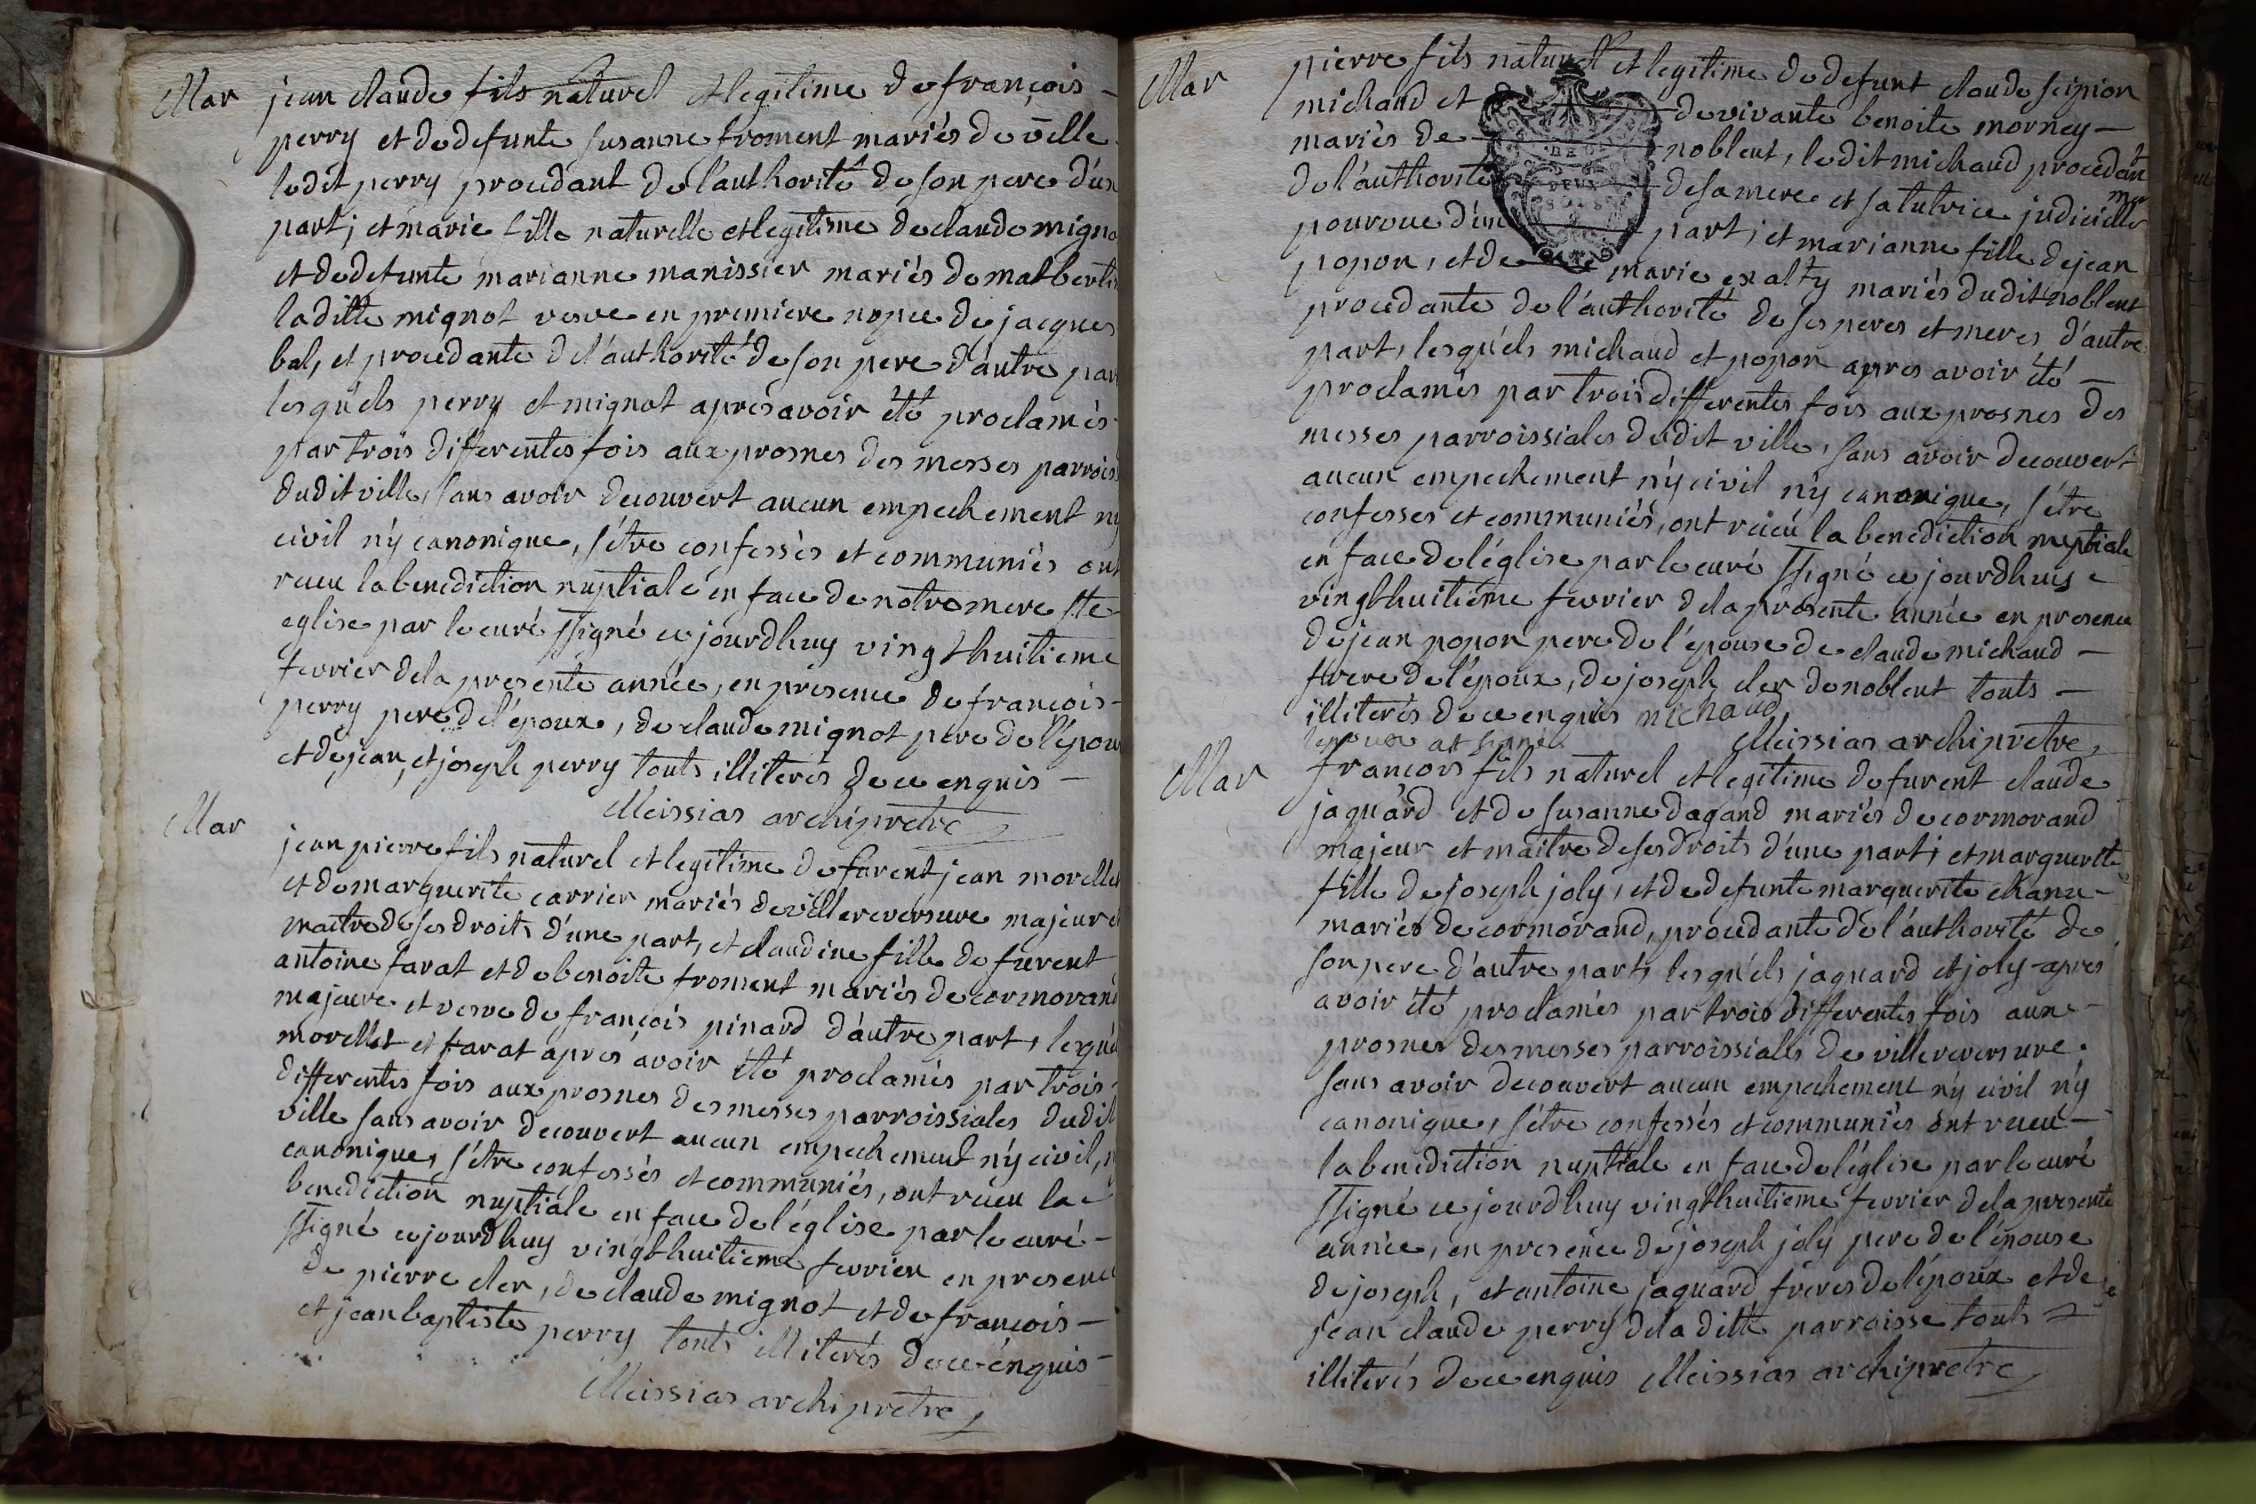 Mar
jean claude fils naturel et legitime de françois
perry et de defunte susanne froment mariés de ville
ledit perry procedant de l'authorité de son pere d'un
part; et marie fille naturelle et legitime de claude migno
et de defunte marianne manissier mariés de
laditte mignot vesve en premiere nopce de jacques
bal, et procedante de l'authorité de son pere d'autre par
lesquéls perry et mignot apres avoir été proclamés
par trois differentes fois aux prosnes des messes parrois
dudit ville, sans avoir decouvert aucun empechement ny
civil n'y canonique, s'être confessés et communiés ont
receu la benediction nuptiale en face de notre mere ste
eglise par le curé ssigné ce jourdhuy vingt huitieme
fevrier de la presente année, en presence de françois
perry pere de l'époux, de claude mignot pere de l'épou
et de jean, et joseph perry touts illiterés de ce enquis
Meissias archiprêtre
Mar
jean pierre fils naturel et legitime de furent jean morellet
et de marguerite carrier mariés de villereversure majeur et
maitre de ses droits d'une part, et claudine fille de furent
antoine farat et de benoite froment mariés de cormorand
majeure et vesve de françois pinard d'autre part, lesqué
morellet et farat apres avoir été proclamés par trois
differentes fois aux prosnes des messes parroissiales dudit
ville sans avoir decouvert aucun empechement n'y civil, n'y
canonique, s'être confessés et communiés, ont receu la
benediction nuptiale en face de l'église par le curé
ssigné ce jourdhuy vingt huitieme fevrier en presence
de pierre cler, de claude mignot et de françois
et jean baptiste perry touts illiterés de ce enquis
Meissias archiprêtre
Mar
pierre fils naturel et legitime de defunt claude scipion
michaud et de vivante benoite morney
mariés de noblent, ledit michaud procedant
de l'authorité de sa mere et sa tutrice judicielle
pourvue d'une part; et marianne fille de jean
popon, et de marie exalty mariés dudit noblent
procedante de l'authorité de ses peres et meres d'autre
part, lesquéls michaud et popon apres avoir été
proclamés par trois differentes fois aux prosnes des
messes parroissiales dudit ville, sans avoir decouvert
aucun empechement n'y civil n'y canonique, s'être
confesses et communiés, ont receu la benediction nuptiale
en face de l'église par le curé ssigné ce jourdhuy
vingt huitieme fevrier de la presente année en presence
de jean popon pere de l'épouse de claude michaud
frere de l'époux, de joseph cler de noblent touts
illiterés de ce enquis michaud
l'epoux at signé Meissias archiprêtre
Mar
françois fils naturel et legitime de furent claude
jaquard et de susanne dagand mariés de cormorand
majeur et maitre de ses droits d'une part; et marguerite
fille de joseph joly, et de defunte marguerite chanu
mariés de cormorand, procedante de l'authorité de
son pere d'autre part, lesquéls jaquard et joly apres
avoir été proclamés par trois differentes fois aux
prosnes des messes parroissiales de villereversure,
sans avoir decouvert aucun empechement n'y civil n'y
canonique, s'être confessés et communiés ont receu
la benediction nuptiale en face de l'église par le curé
ssigné ce jourdhuy vingt huitieme fevrier de la presente
année, en presence de joseph joly pere de l'épouse
de joseph, et antoine jaquard freres de l'époux et de
jean claude perry de la ditte parroisse touts
illiterés de ce enquis Meissias archiprêtre